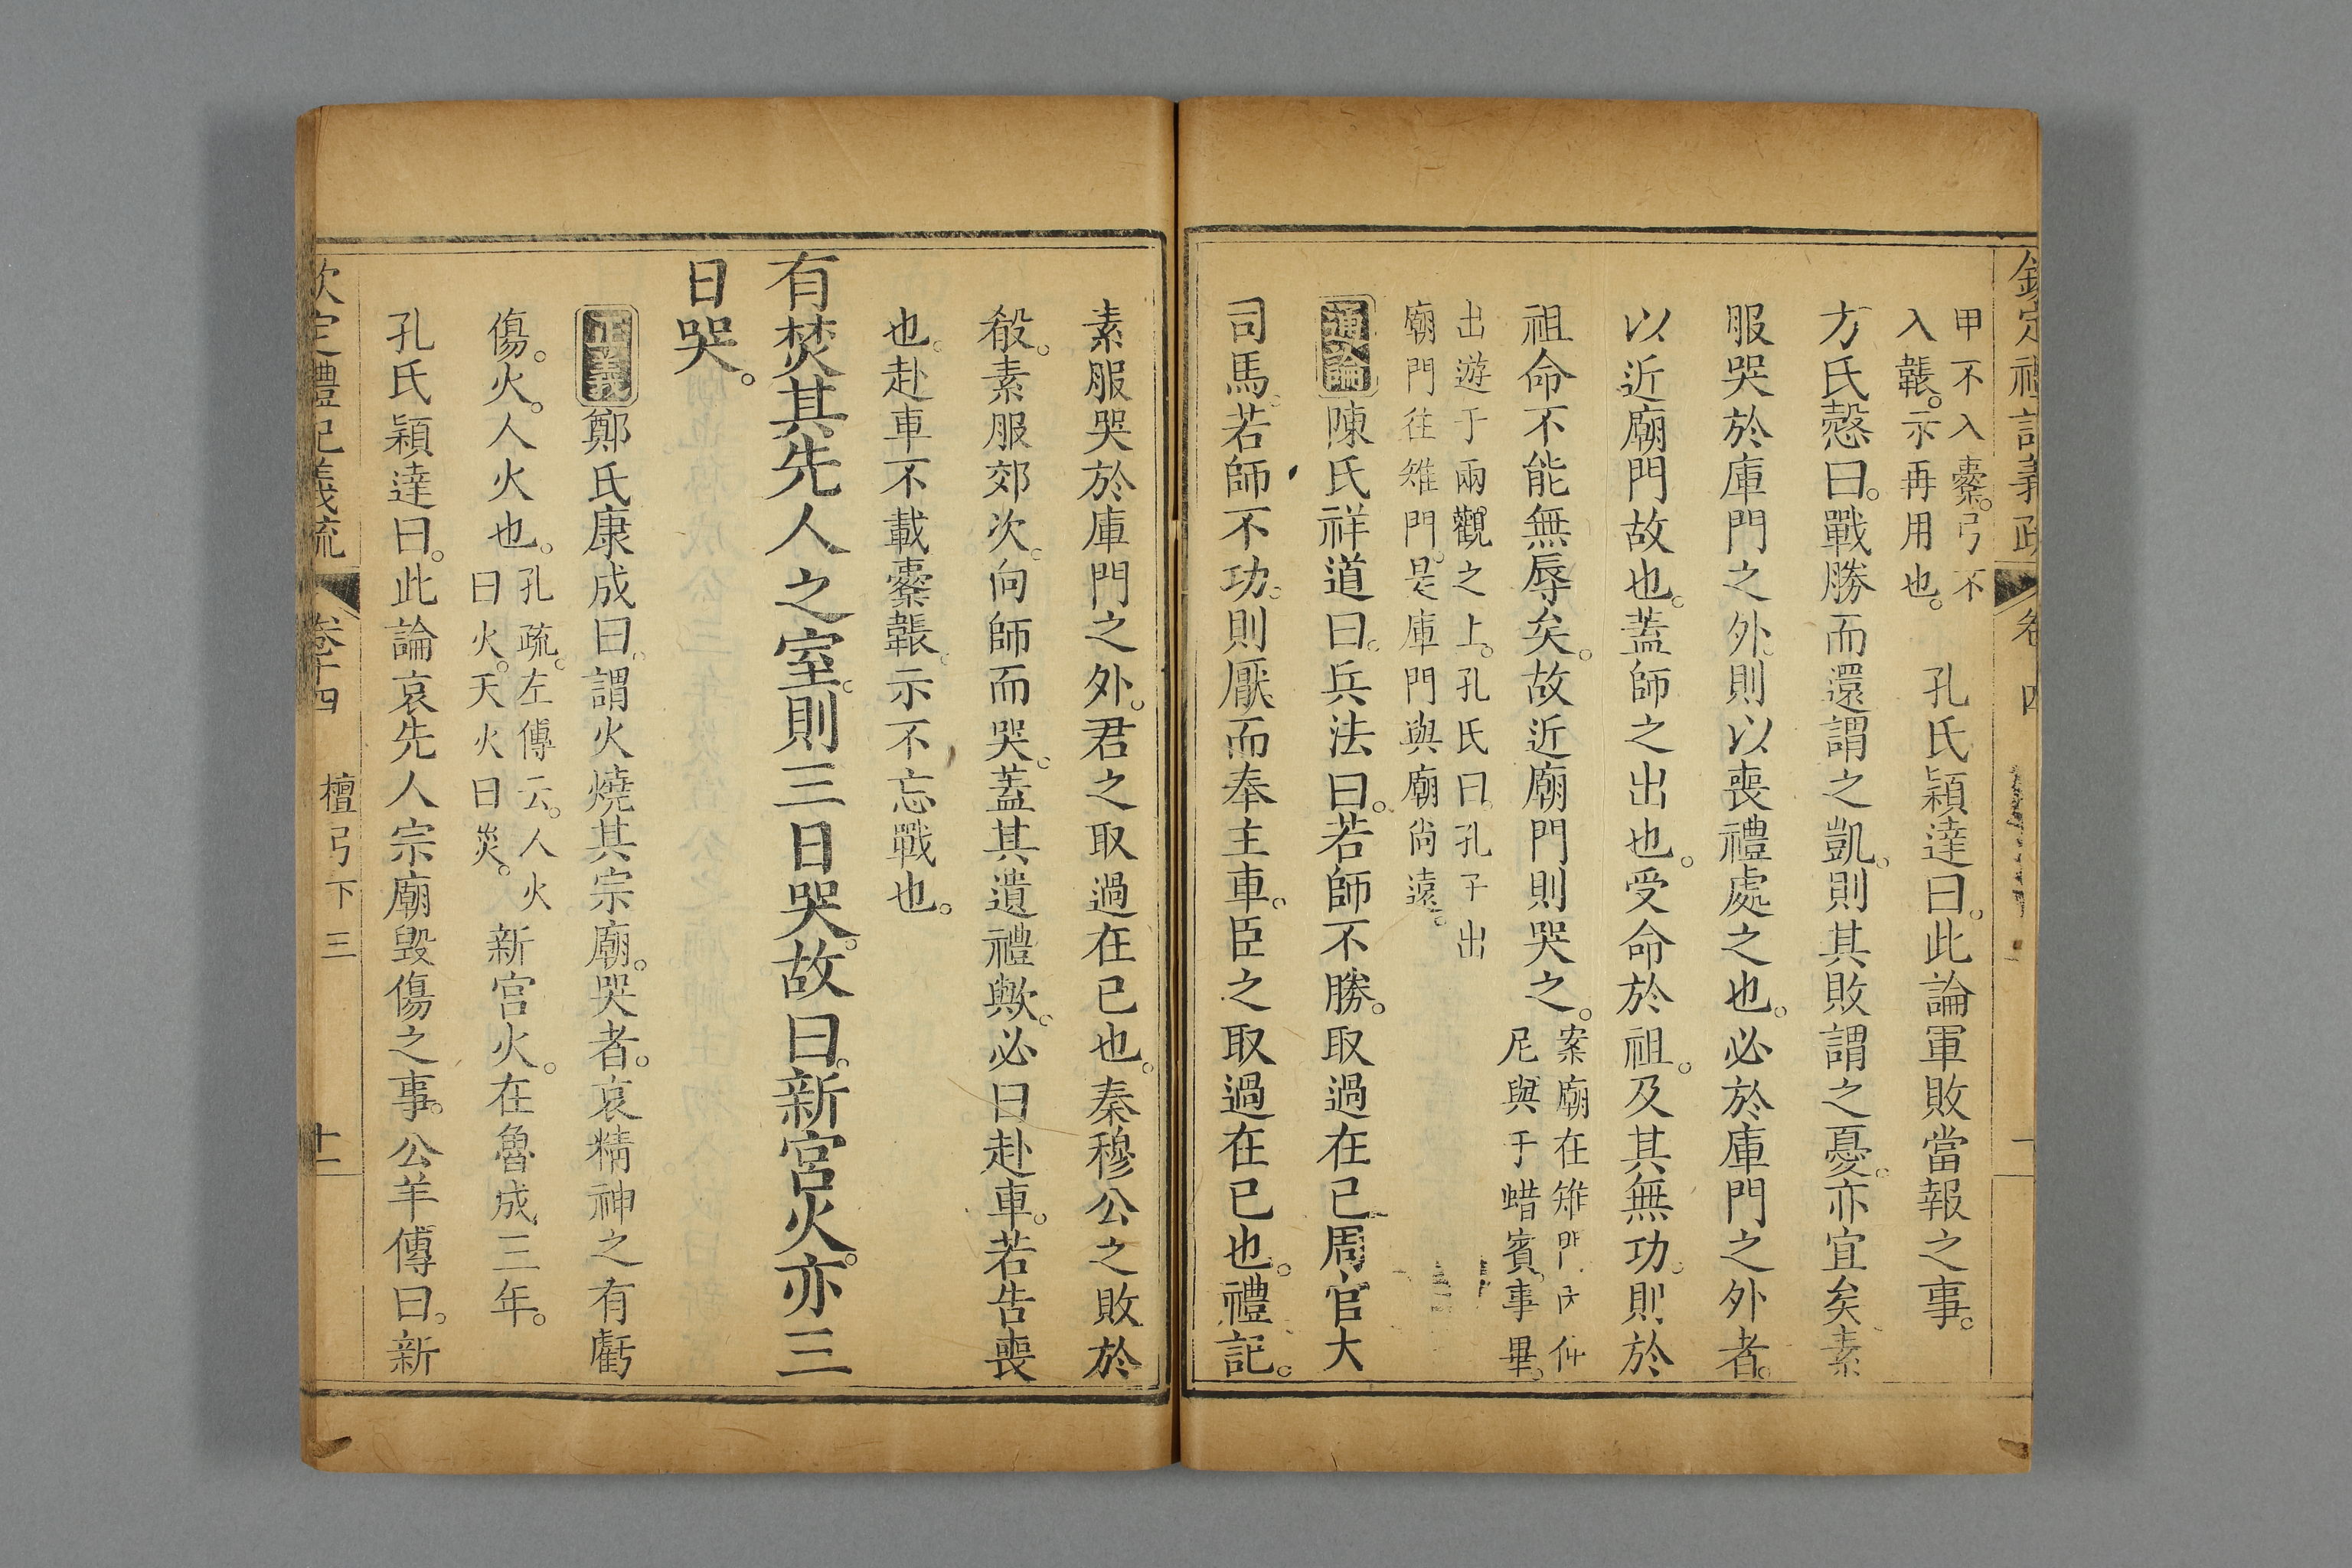 欽定禮記義疏 卷 四
甲不入櫜。弓不
入韔。示再用也。 孔氏穎達曰。此論軍敗當報之事。
方氏慤曰。戰勝而還謂之凱。則其敗謂之憂。亦宜矣素
服哭於庫門之外。則以喪禮處之也。必於庫門之外者。
以近廟門故也。蓋師之出也。受命於祖。及其無功。則於
祖命不能無辱矣。故近廟門則哭之。案廟在雉
尼與于蜡賓。事畢。
出遊于兩觀之上。孔氏曰。孔子出
廟門往雉門。是庫門與廟尚遠。
通論陳氏祥道曰。兵法曰。若師不勝。取過在已周官大
司馬。若師不功。則厭而奉主車。臣之取過在已也。禮記。
素服哭於庫門之外。君之取過在已也。秦穆公之敗於
殽。素服郊次。向師而哭。蓋其遺禮歟。必曰赴車。若告喪
也。赴車不載櫜韔。示不忘戰也。
有焚其先人之室。則三日哭。故曰。新宮火。亦三
日哭。
正義鄭氏康成曰。謂火燒其宗廟。哭者。哀精神之有虧
傷。火。人火也。孔疏。左傳云。人火
曰火。天火曰災。 新宮火。在魯成三年。
孔氏穎達曰。此論哀先人宗廟毀傷之事。公羊傳曰。新
欽定禮記義疏 卷十四 檀弓下三 十二